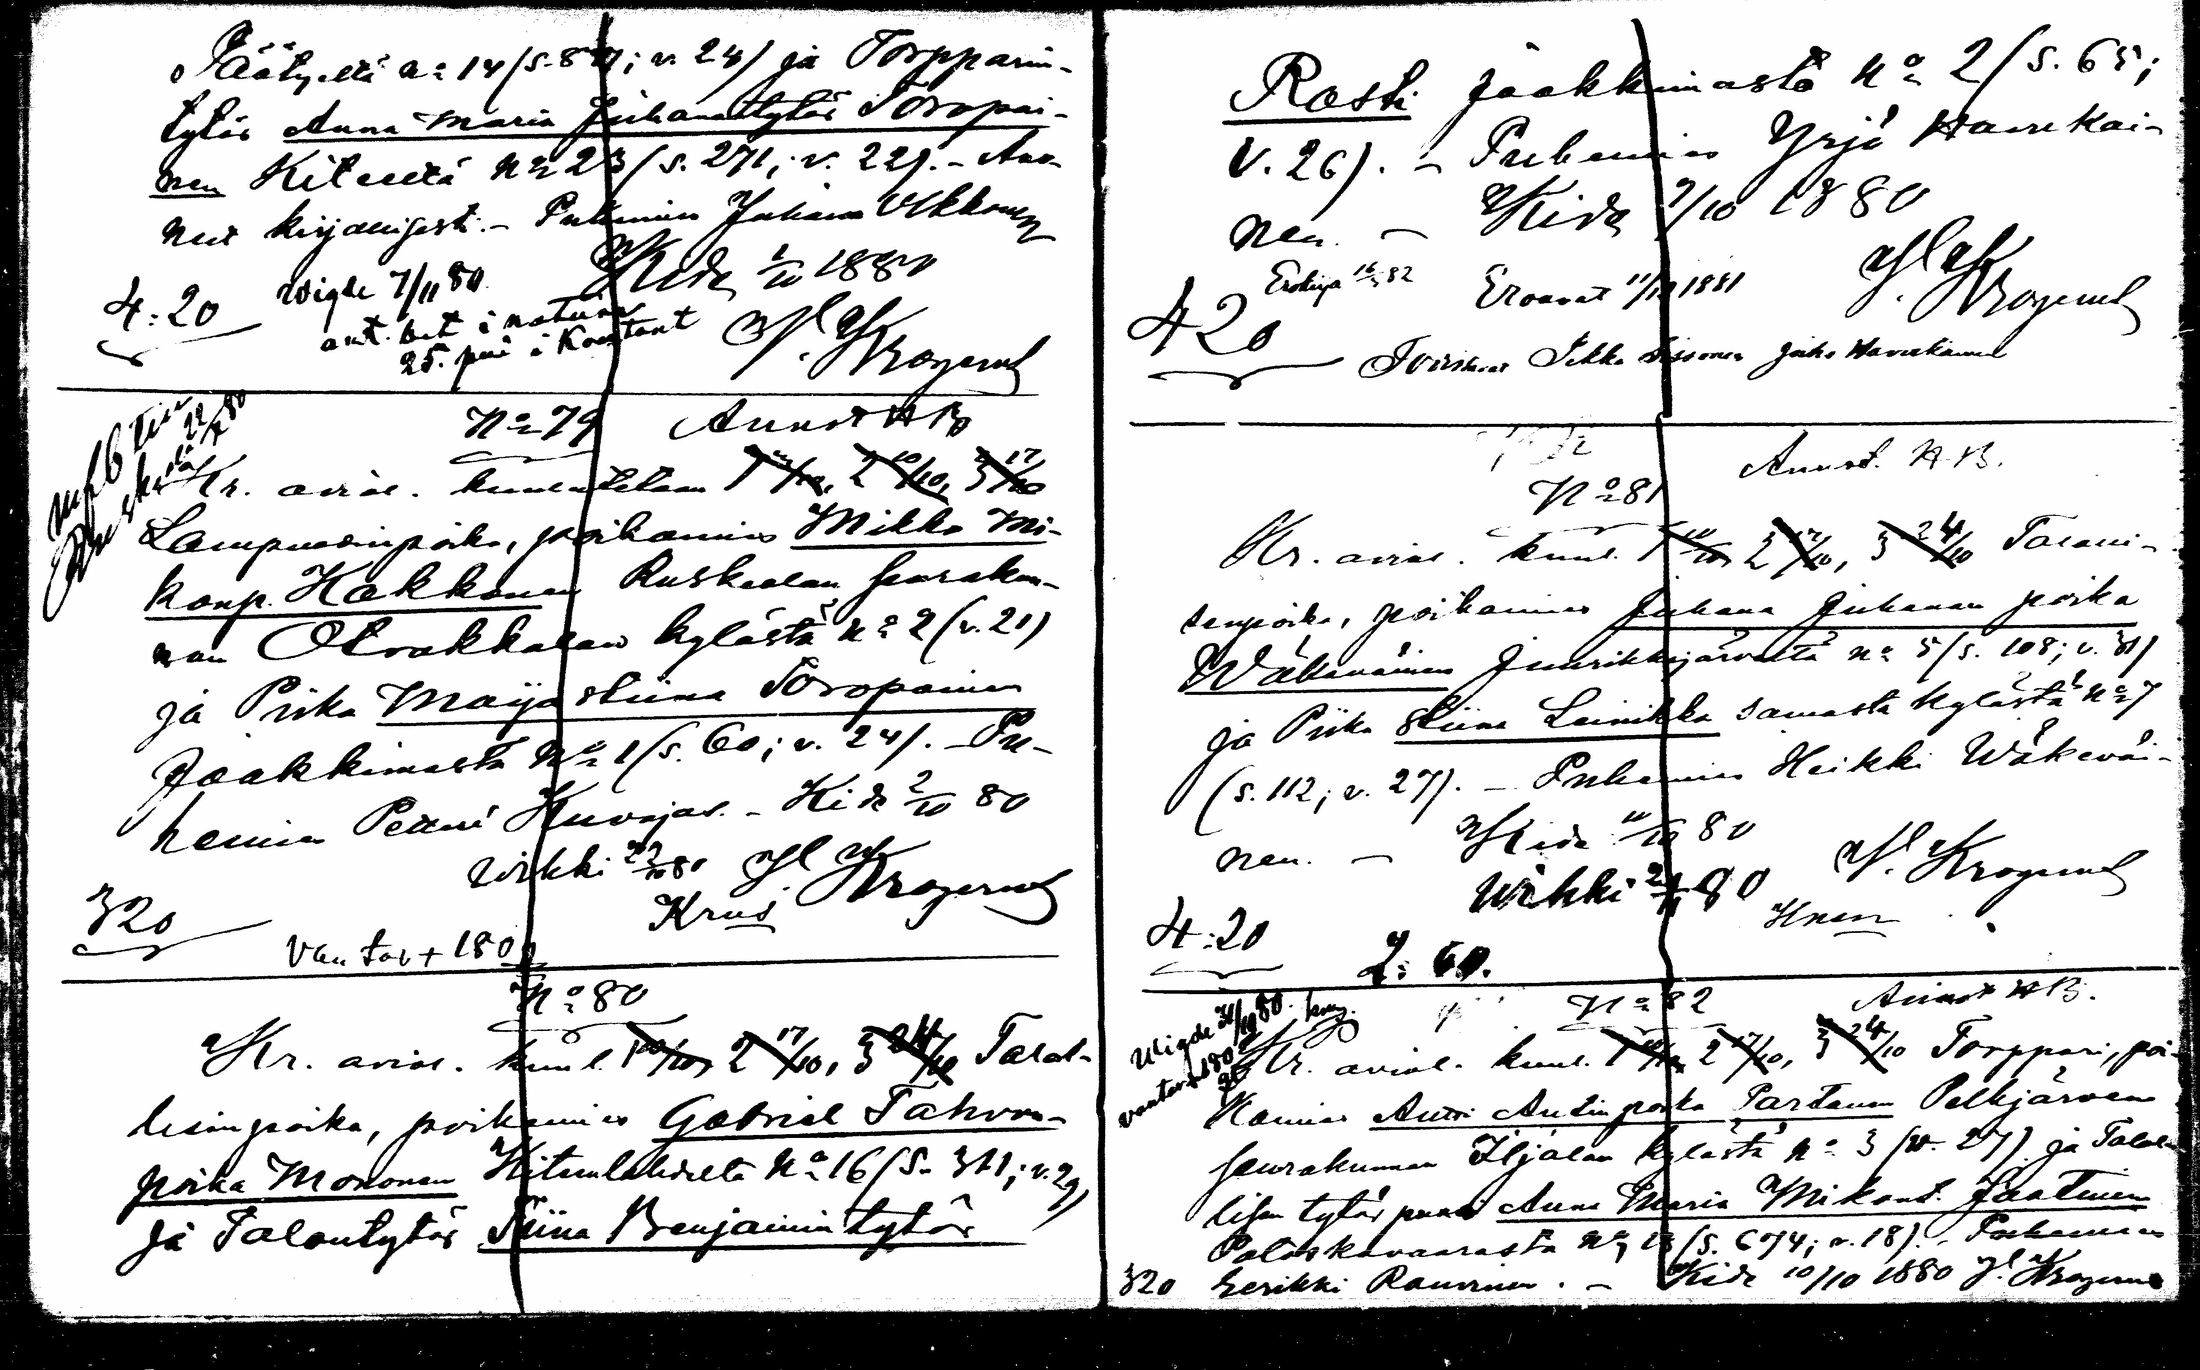 Päätyeltä no 14 (s. 891; v. 24) ja Torpparin-
tytär Anna Maria Juhanantytär Toropai-
nen Kiteeltä No 23 (s. 271; v. 22). - Ano-
nut kirjallisesti. - Puhemies Juhana Ukkonen
Kide 2/10 1880
Wigde 7/11 80.
4:20
ant. bet i natura
25. pni i Kontant
J. Krogerus
No 79 Annot HB
Kr. aviol. kuulutetaan 1 3/10, 2 10/10, 3 17/10
Lampuodinpoika, poikamies Mikko Mi-
konp. Hakkonen Ruskealan seurakun-
nan Otrakkalan kylästä No 2 (v. 21)
ja Piika Maija Stiina Toropainen
Jaakkimasta No 1 (s. 60; v. 24). - Pu-
hemies Petteri Kuvajas. - Kide 2/10 80
Wihki 22/10 80 J. Krogerus
Krus
320
Van tod + 180
No 80
Kr. aviol. kuul. 1 10/10, 2 17/10, 3 24/10 Talol-
lisenpoika, poikamies Gabriel Tahvon-
poika Mononen Kiteenlahdelta No 16 (s. 311; v. 29)
ja Talontytär Tiina Benjamintytär
Rosti Jaakkimasta No 2 (s. 65;
v. 26). - Puhemies Yrjö Havukai-
nen. - Kide 9/10 1880
Erokirja 16/3 82 Eroavat 11/12 1881 J. Krogerus
420
Todistavat Pekka Sissonen Juho Havukainen
No 81 Annot. HB.
Kr. aviol. kuul. 1 10/10 2 17/10, 3 24/10 Taloni-
senpoika, poikamies Juhana Juhanan poika
Wäkeväinen Juurikkajärveltä no 5 (s. 108; v. 31)
ja Piika Stiina Leinikka samasta kylästä No 7
(s. 112; v. 27). - Puhemies Heikki Wäkeväi-
nen. - Kide 10/10 80
Wihki 80 J. Krogerus
4:20
2:60.
No 82 Annot HB.
Wigde 31/10 80.
Kr. aviol. kuul. 1 10/10 2 17/10, 3 24/10 Torppari, poi-
kamies Antti Antinpoika Partanen Pelkjärven
seurakunnan Iljalan kylästä No 3 (v. 27) ja Talol-
lisen tytär Anna Maria Mikont. Jaatinen
Potoskavaarasta No 13 (s. 674; v. 18). - Puhemies
320 Eerikki Rouvinen. - Kide 10/10 1880 J. Krogerus